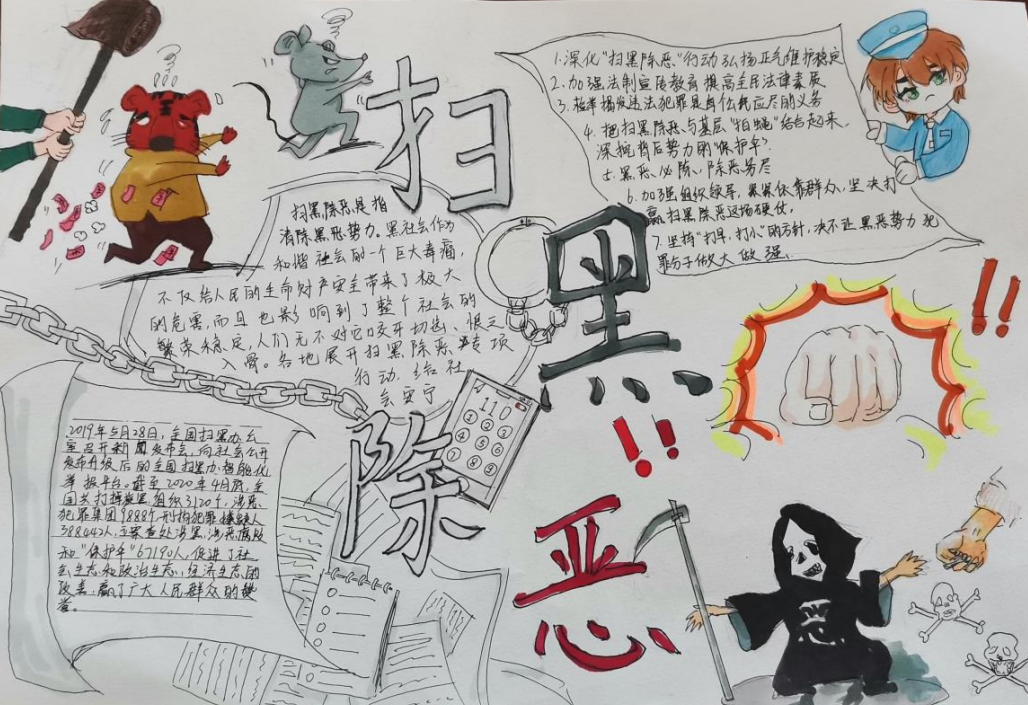 扫
黑
除
恶
扫黑除恶是指
清除黑恶势力。黑社会作为
和谐社会的一个巨大毒瘤,
不仅给人民的生命财产安全带来了极大
的危害,而且也影响到了整个社会的
繁荣稳定,人们无不对它咬牙切齿、恨之
入骨。各地展开扫黑除恶专项
行动,给社
会安宁
1.深化“扫黑除恶”行动弘扬正气维护稳定
2.加强法制宣传教育提高全民法律素质
3.检举揭发违法犯罪是每位公民应尽的义务
4.把扫黑除恶与基层“拍蝇”结合起来,
深挖背后势力的“保护伞”.
5.黑恶必除,除恶务尽
6.加强组织领导,紧紧依靠群众,坚决打
赢扫黑除恶这场硬仗,
7.坚持“打早,打小”的方针,决不让黑恶势力犯
罪分子做大做强.
2019年5月28日,全国扫黑办公
室召开新闻发布会,向社会公开
发布升级后的全国扫黑办智能化
举报平台。截至2020年4月底,全
国共打掉涉黑组织3120个,涉恶
犯罪集团9888个刑拘犯罪嫌疑人
388442人,立案查处涉黑,涉恶腐败
和“保护伞”67190人,促进了社
会生态和政治生态,经济生态的
改善,赢了广大人民群众的赞
誉。
110
1 2 3
4 5 6
7 8 9
!!
!!
恶